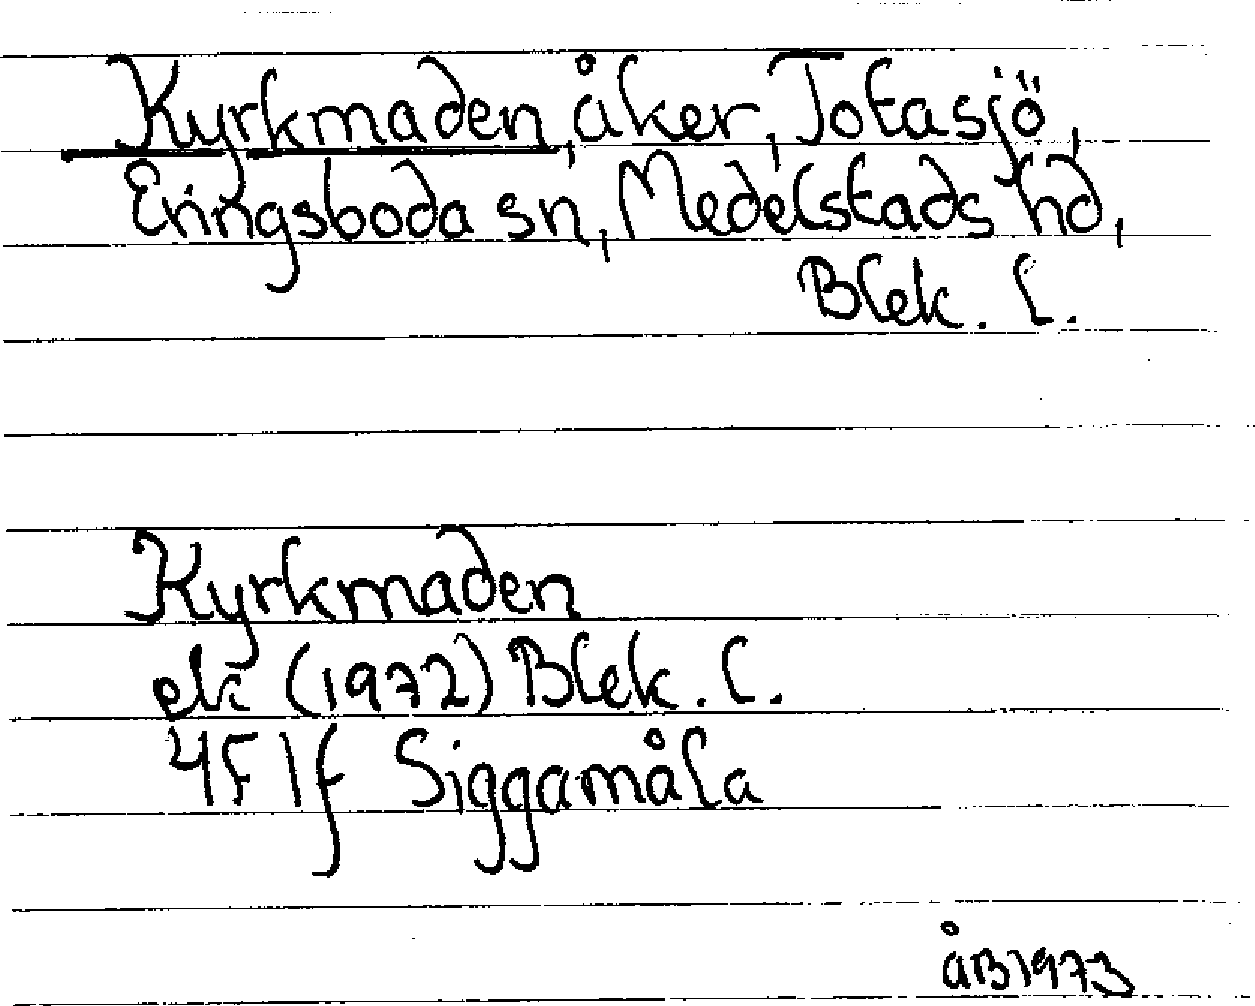 Kyrkmaden, åker, Totasjö,
Eringsboda sn, Medelstads hd,
Blek. l.
Kyrkmaden
ek (1972) Blek. l.
4F 1f Siggamåla
ÅB 1973